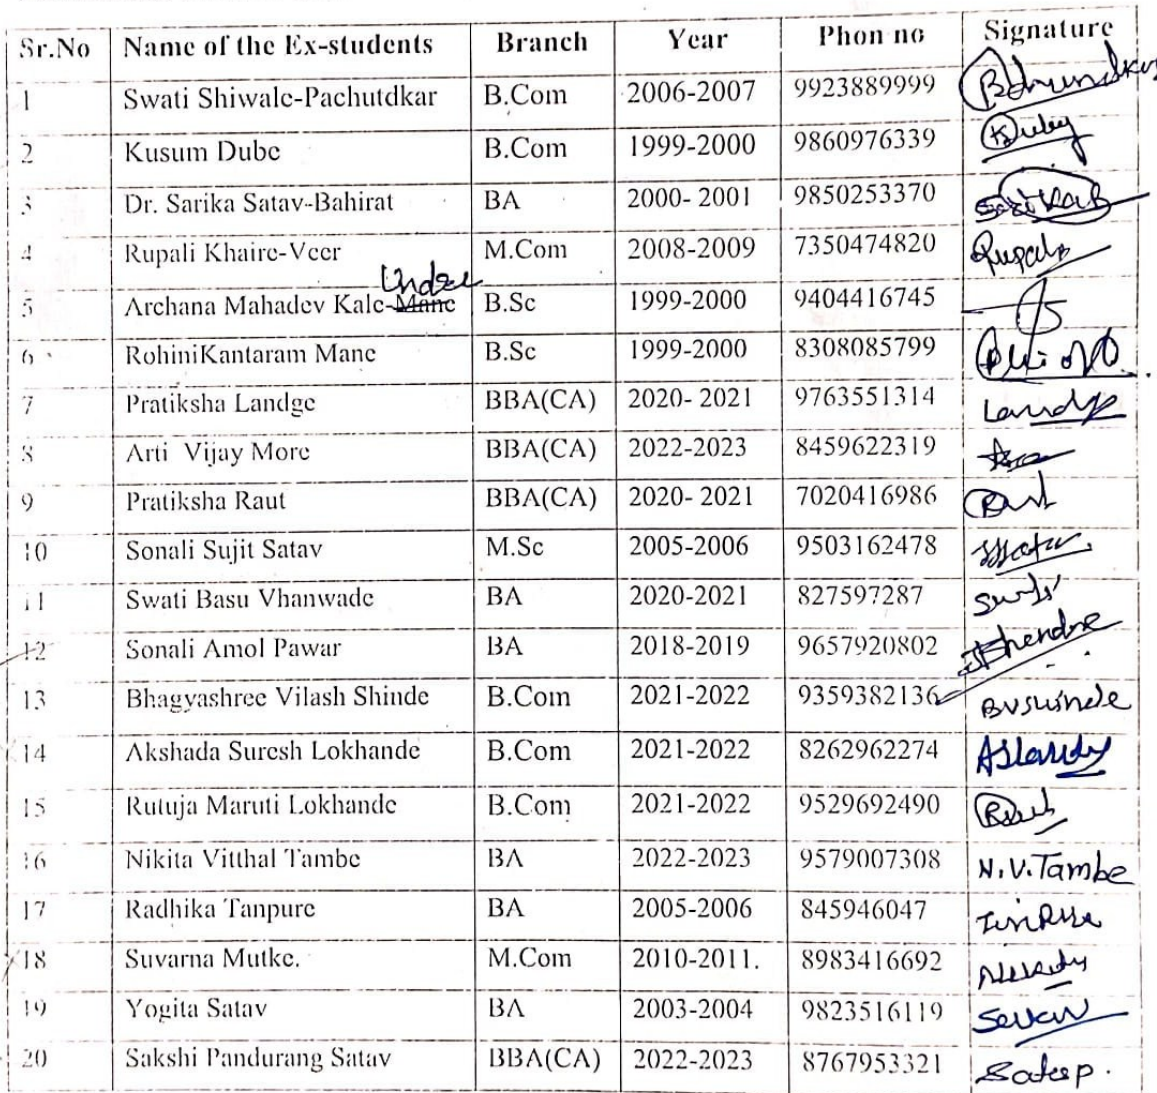 Sr.No Name of the Ex-students Branch Year Phon no Signature
1 Swati Shiwale-Pachutdkar B.Com 2006-2007 9923889999
2 Kusum Dube B.Com 1999-2000 9860976339
3 Dr. Sarika Satav-Bahirat BA 2000- 2001 9850253370
4 Rupali Khaire-Veer M.Com 2008-2009 7350474820
Undre
5 Archana Mahadev Kale-Mane B.Sc 1999-2000 9404416745
6 RohiniKantaram Mane B.Sc 1999-2000 8308085799
7 Pratiksha Landge BBA(CA) 2020- 2021 9763551314
8 Arti Vijay More BBA(CA) 2022-2023 8459622319
9 Pratiksha Raut BBA(CA) 2020- 2021 7020416986
10 Sonali Sujit Satav M.Sc 2005-2006 9503162478
11 Swati Basu Vhanwade BA 2020-2021 827597287
12 Sonali Amol Pawar BA 2018-2019 9657920802
13 Bhagyashree Vilash Shinde B.Com 2021-2022 9359382136 BVShinde
14 Akshada Suresh Lokhande B.Com 2021-2022 8262962274
15 Rutuja Maruti Lokhande B.Com 2021-2022 9529692490
16 Nikita Vitthal Tambe BA 2022-2023 9579007308 N.V.Tambe
17 Radhika Tanpure BA 2005-2006 845946047
18 Suvarna Mutke. M.Com 2010-2011. 8983416692
19 Yogita Satav BA 2003-2004 9823516119
20 Sakshi Pandurang Satav BBA(CA) 2022-2023 8767953321